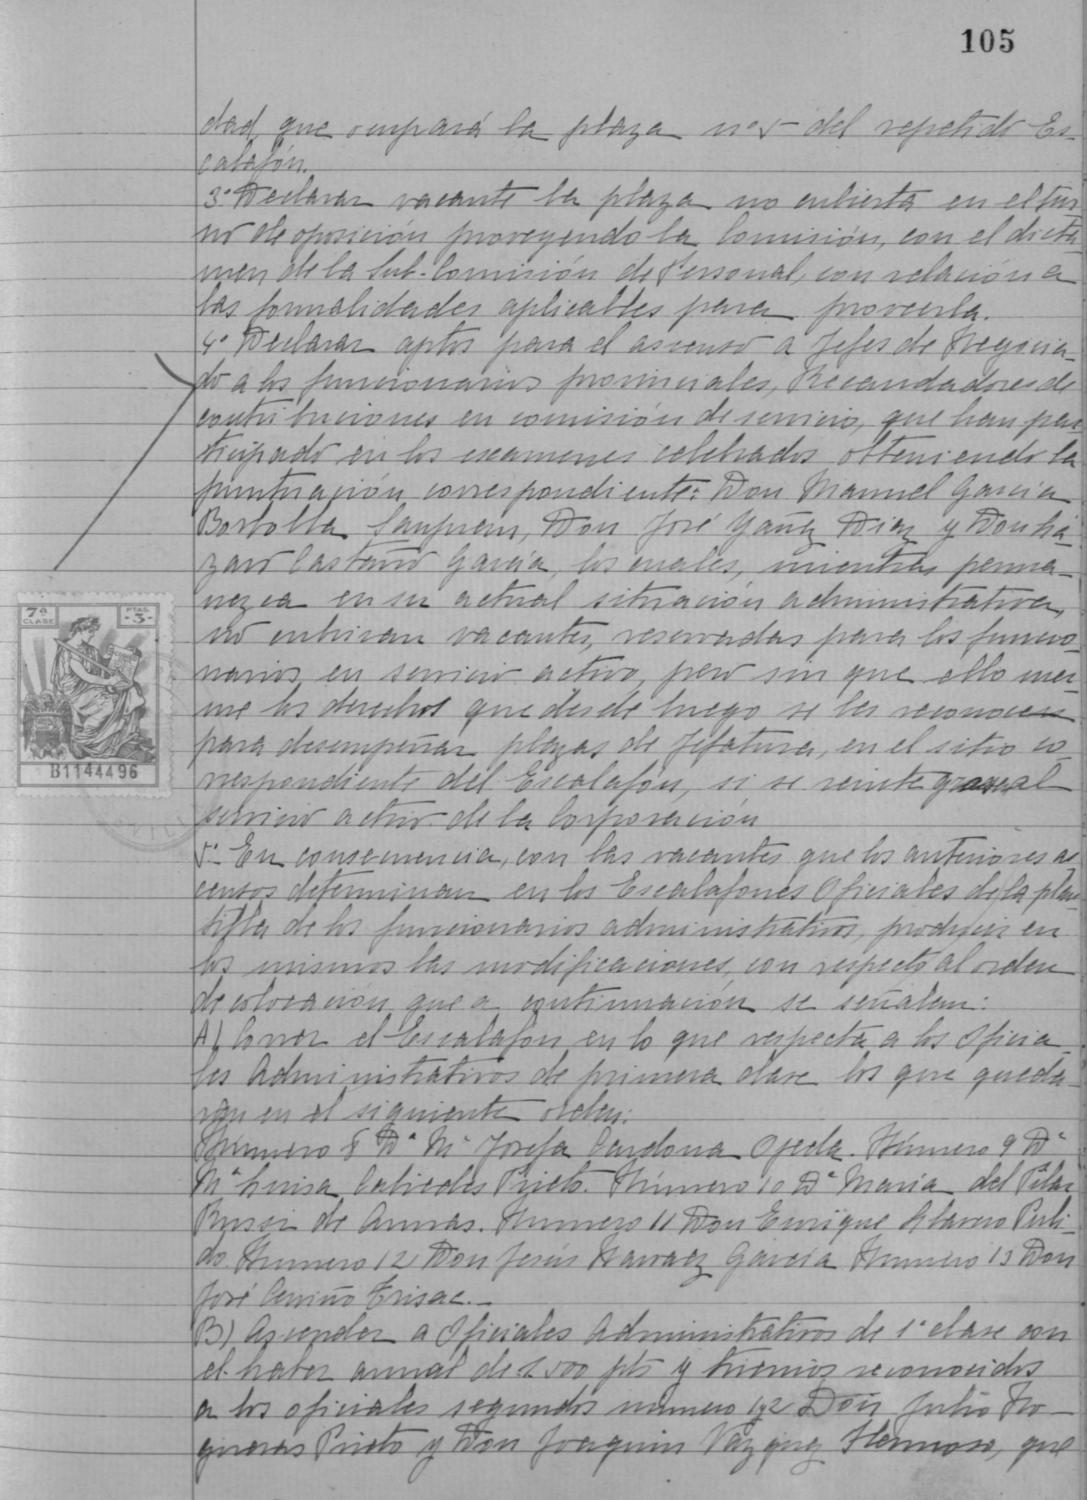 105
dad, que ocupará la plaza nº 5 del repetido Es-
calafón.
3º Declarar vacante la plaza no cubierta en el tur-
no de oposición proveyendo la Comisión, con el dicta-
men de la Sub-Comisión de Personal, con relación a
las formalidades aplicables para proveerla.
4º Declarar aptos para el ascenso a Jefes de Negocia-
do a los funcionarios provinciales, Recaudadores de
contribuciones en comisión de servicio, que han par-
ticipado en los exámenes celebrados obteniendo la
puntuación correspondiente: Don Manuel García
Borbolla, Don José Yañez Diaz y Don Lá-
zaro Castaño García, los cuales, mientras perma-
nezca en su actual situación administrativa,
no cubriran vacantes, reservadas para los funcio-
narios en servicio activo, pero sin que ello mer-
me los derechos que desde luego se les reconocen
para desempeñar plazas de Jefatura, en el sitio co-
rrespondiente del Escalafón, si se reintegrasen al
servicio activo de la Corporación
5º En consecuencia, con las vacantes que los anteriores as-
censos determinan en los Escalafones Oficiales de la plan-
tilla de los funcionarios administrativos, producir en
los mismos las modificaciones, con respecto al orden
de colocación que a continuación se señalan:
A) Correr el Escalafón en lo que respecta a los Oficia-
les Administrativos de primera clase los que queda-
ran en el siguiente orden:
Número 8 Dª Mª Josefa Cardona Ojeda. Número 9 Dª
Mª Luisa Cabiedes Prieto. Número 10 Dª María del Pilar
de Armas. Número 11 Don Enrique Clavero Puli-
do. Número 12 Don Jesús Narvaez García Número 13 Don
José
B) Ascender a Oficiales Administrativos de 1ª clase con
el haber anual de pts y trienios reconocidos
a los oficiales segundos número 1 y 2 Don Julio No-
gueras Prieto y Don Joaquin Vazquez Hermoso, que
7ª
CLASE
PTAS.
-3-
B1144496